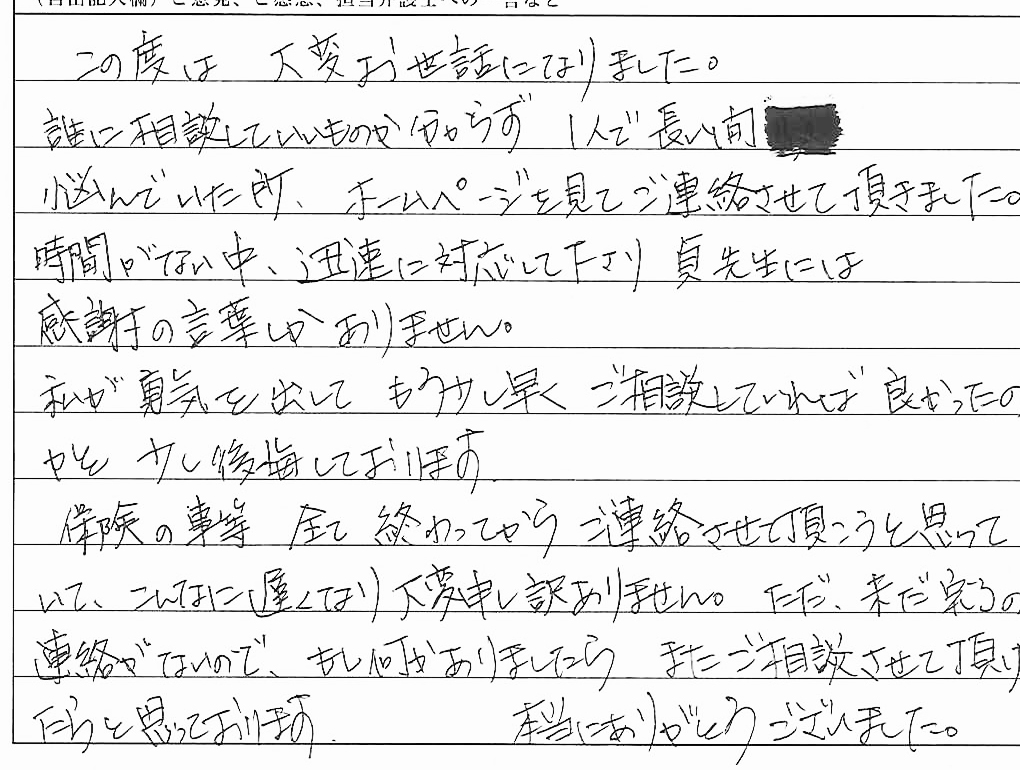 (自由記入欄)ご意見、ご感想、担当弁護士への一言など
この度は 大変お世話になりました。
誰に相談していいものか分からず 1人で長い間
悩んでいた所、ホームページを見てご連絡させて頂きました。
時間がない中、迅速に対応して下さり 貞先生には
感謝の言葉しかありません。
私が勇気を出して もう少し早く ご相談していれば 良かったの
かと 少し後悔しております
保険の事等 全て 終わってから ご連絡させて頂こうと思って
いて、こんなに遅くなり 大変申し訳ありません。ただ、未だ 宅の
連絡がないので、もし何かありましたら またご相談させて頂け
たらと思っております 本当にありがとうございました。